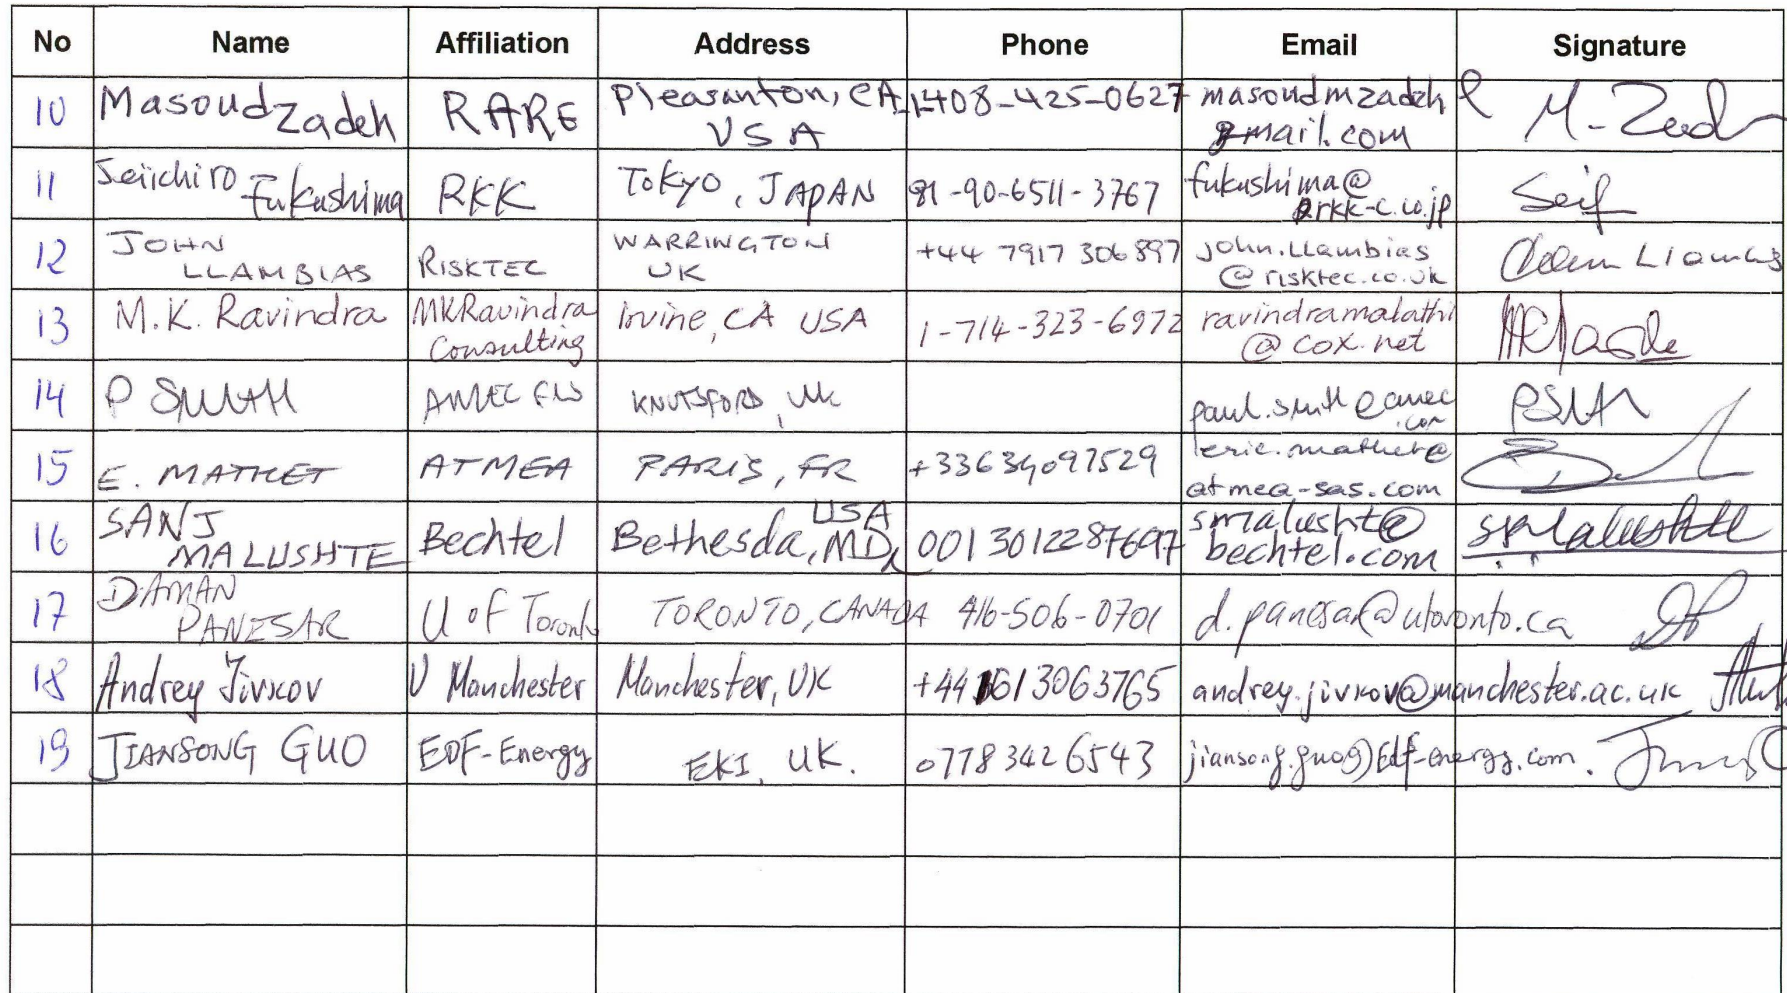 No Name Affiliation Address Phone Email Signature
10 Masoud Zadeh RARE Pleasanton, CA USA 1-408-425-0627 masoudmzadeh@gmail.com M-Zad
11 Seiichiro Fukushima RKK Tokyo, JAPAN 81-90-6511-3767 fukushima@rkk-c.co.jp Seif
12 JOHN LLAMBIAS RISKTEC WARRINGTON UK +44 7917 306897 john.llambias@risktec.co.uk
13 M.K. Ravindra MKRavindra Consulting Irvine, CA USA 1-714-323-6972 ravindramalathi@cox.net
14 P SMITH AMEC FW KNUTSFORD, UK paul.smith@amec.com
15 E. MATHET ATMEA PARIS, FR +33634097529 eric.mathet@atmea-sas.com
16 SANJ MALUSHTE Bechtel Bethesda, MD, USA 0013012287697 smalusht@bechtel.com SMalushte
17 DAMAN PANESAR U of Toronto TORONTO, CANADA 416-506-0701 d.panesar@utoronto.ca
18 Andrey Jivkov U Manchester Manchester, UK +441613063765 andrey.jivkov@manchester.ac.uk
19 JIANSONG GUO EDF-Energy EKI, UK. 07783426543 jiansong.guo@Edf-energy.com.